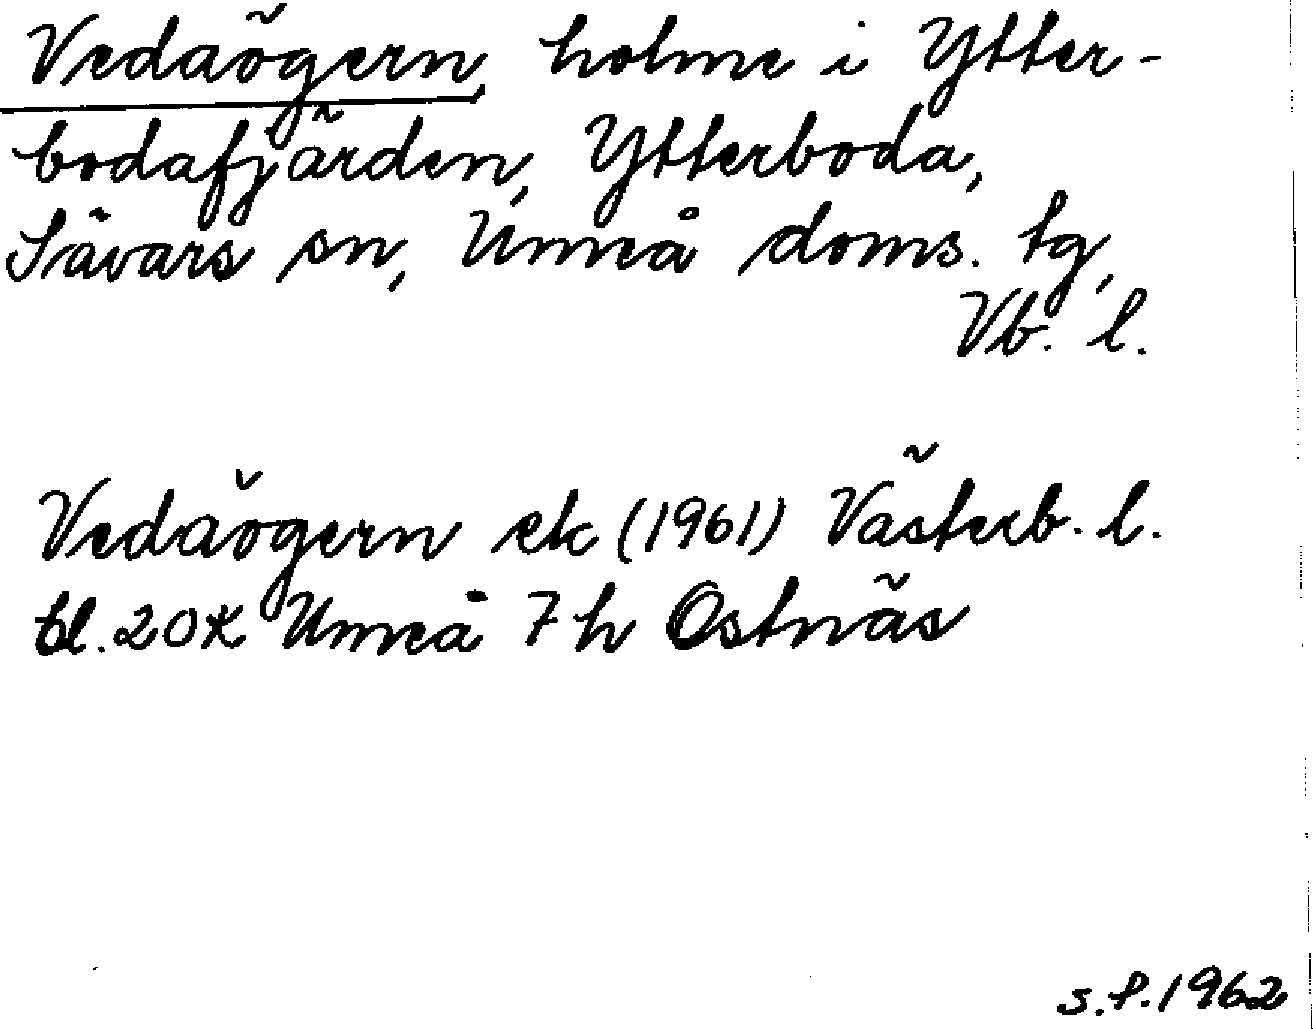 Vedaögern, holme i Ytter-
bodafjärden, Ytterboda,
Sävars sn, Umeå doms. tg,
Vb. l.
Vedaögern ek (1961) Västerb. l.
bl. 20K Umeå 7 h Ostnäs
s.f. 1962